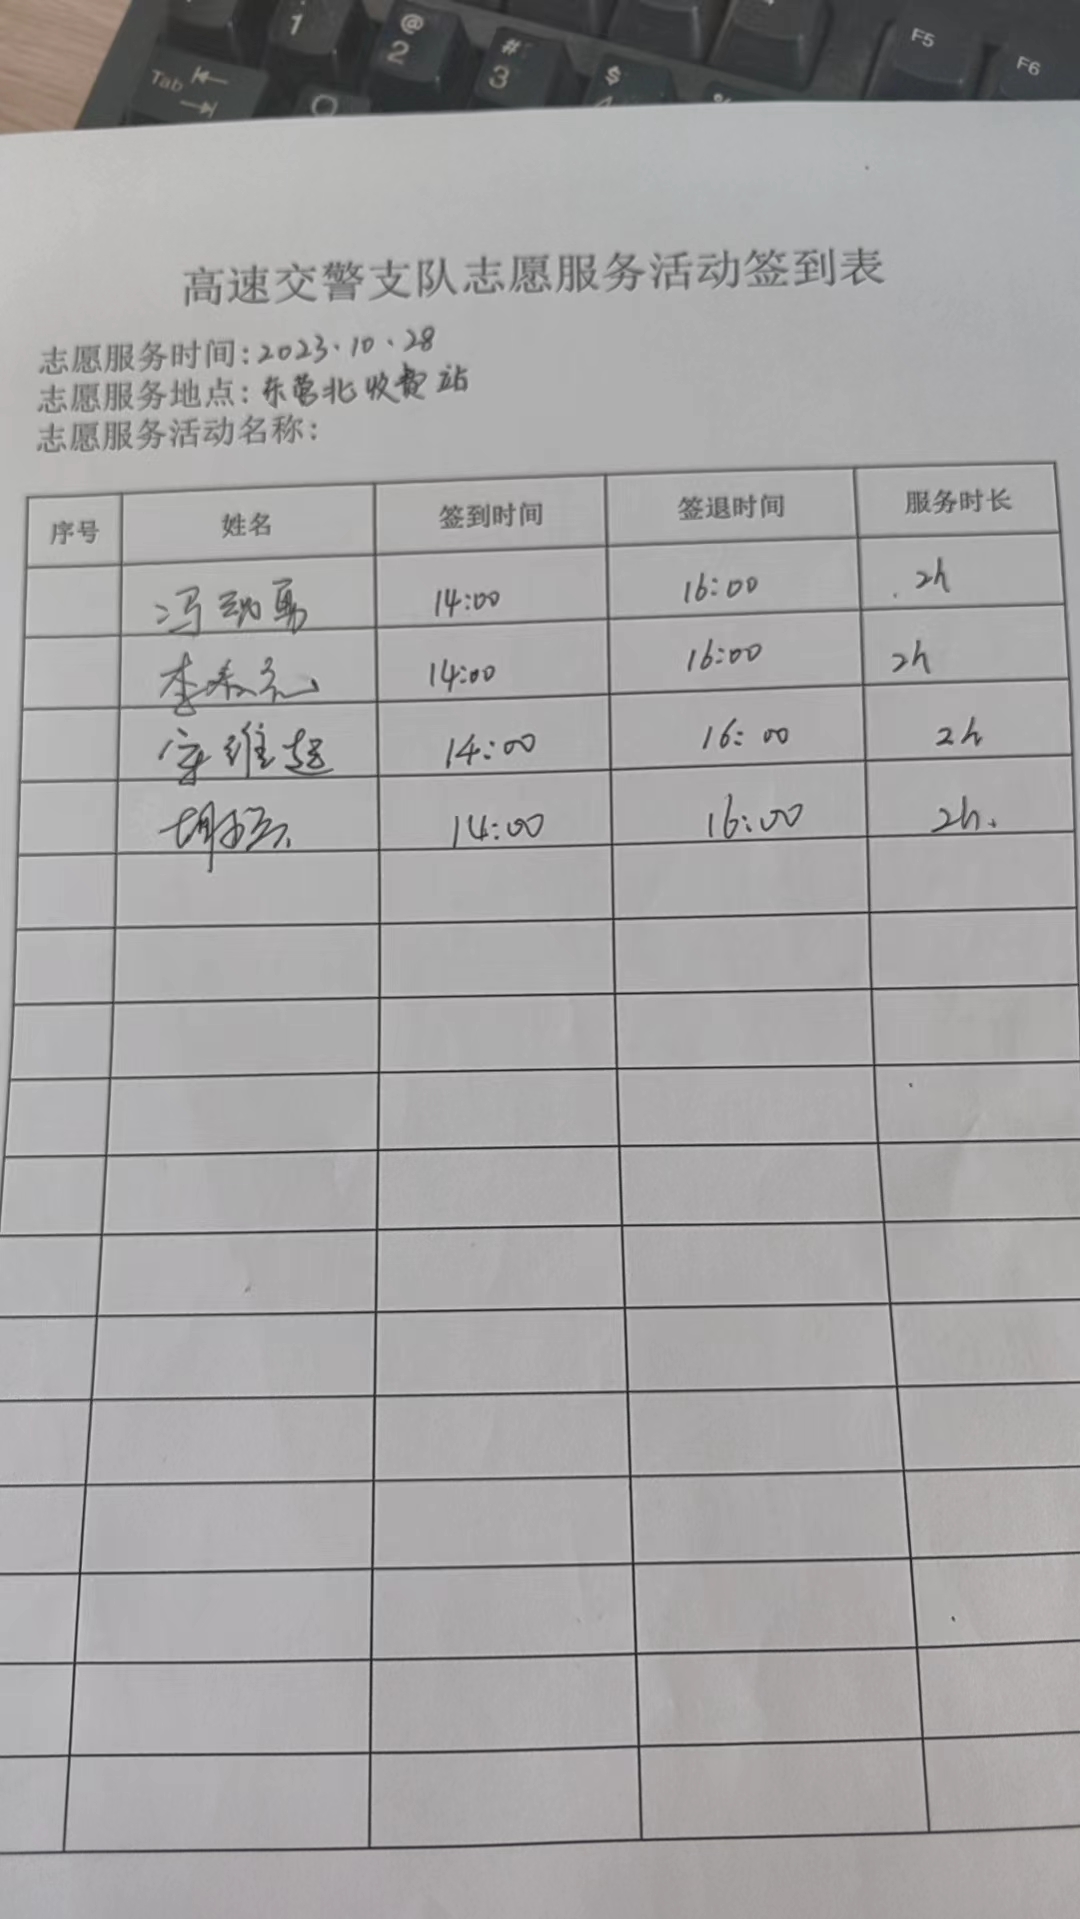 1
@
2
#
3
$
F5
F6
Tab
高速交警支队志愿服务活动签到表
志愿服务时间:2023.10.28
志愿服务地点:东营北收费站
志愿服务活动名称:
序号 姓名 签到时间 签退时间 服务时长
冯 勇 14:00 16:00 2h
李 14:00 16:00 2h
维超 14:00 16:00 2h
胡 14:00 16:00 2h.